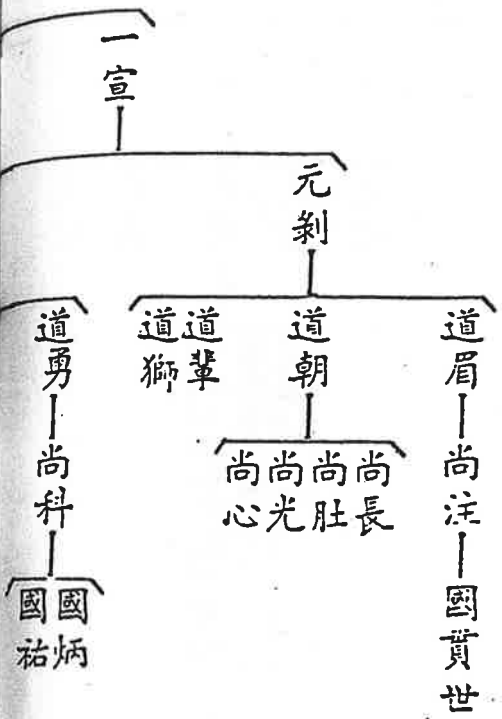 一宣
元剝
道眉
尚注
國貫世
道朝
尚長
尚肚
尚光
尚心
道輩
道獅
道勇
尚科
國炳
國祐